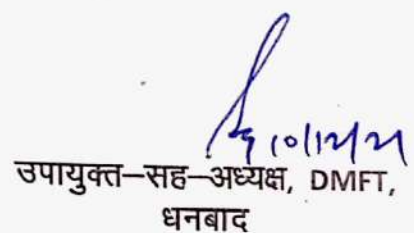 10/12/21
उपायुक्त–सह–अध्यक्ष, DMFT,
धनबाद